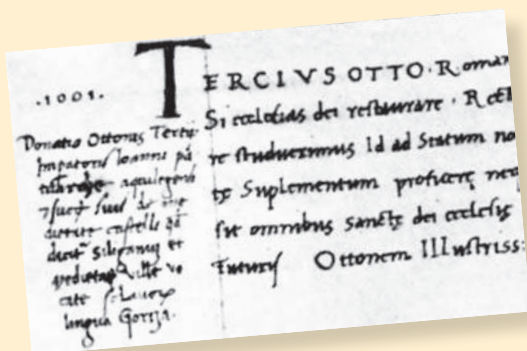 .1001.
Donatio Ottonis Tertii
Impatoris Ioanni pa
aquilegensi
suis de me
castelli qd
dicit Siliganū et
medietas ville vo
cate sclavorū
lingua Goriza.
TERCIVS OTTO. Roman
Si ecclesias dei restaurare. R
re studuerimus Id ad Statum no
tę Suplementum proficere
sit omnibus Sanctę dei ecclesię
Futuris Ottonem IIIustriss: